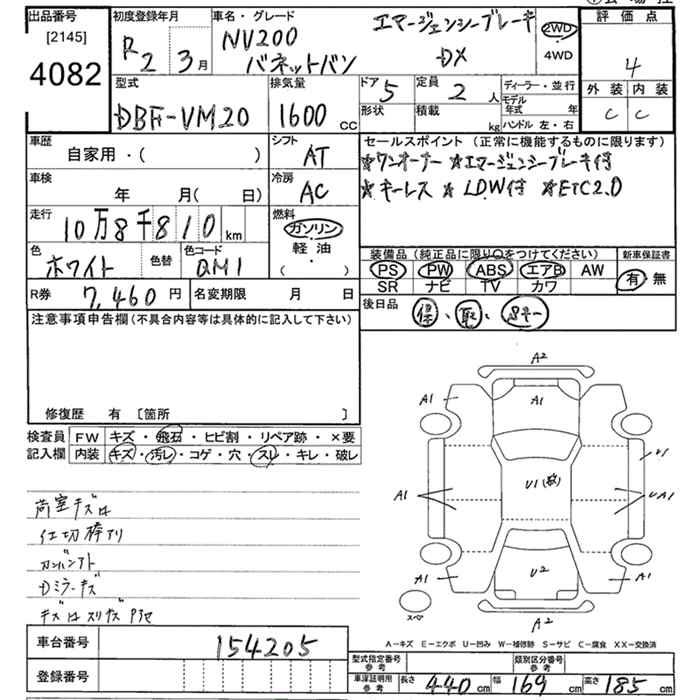 出品番号 初度登録年月 車名・グレード エマージェンシーブレーキ 2WD 評価点
[2145] R2 3月 NV200 バネットバン DX 4WD 4
4082
型式 排気量 ドア 5 定員 2人 ディーラー・並行 外装 内装
DBF-VM20 1600cc 形状 積載 kg モデル年式 年 C C
ハンドル 左・右
車歴 シフト セールスポイント(正常に機能するものに限ります)
自家用・( ) AT ★ワンオーナー ★エマージェンシーブレーキ付
車検 冷房 ★キーレス ★LDW付 ★ETC2.0
年 月( 日) AC
走行 燃料
10万8千810km ガソリン
色 色替 色コード 軽油 装備品(純正品に限り○をつけてください) 新車保証書
ホワイト QM1 ( ・ ) PS PW ABS エアB AW 有・無
SR ナビ TV カワ
R券 7,460円 名変期限 月 日 後日品 保、取、
注意事項申告欄(不具合内容等は具体的に記入して下さい)
修復歴 有 [箇所 ]
検査員 FW キズ・飛石・ヒビ割・リペア跡・×要
記入欄 内装 キズ・汚レ・コゲ・穴・スレ・キレ・破レ
A2
A1 A1 A1
A1 U1 U1
UA1
A1 U2 A1
スペア A2
荷室キズ
仕切棒
Dミラーキズ
A-キズ E-エクボ U-凹み W-補修跡 S-サビ C-腐食 XX-交換済
車台番号 154205
登録番号
型式指定番号 参考 類別区分番号 参考
車庫証明用 参考 長さ 440cm 幅 169cm 高さ 185cm